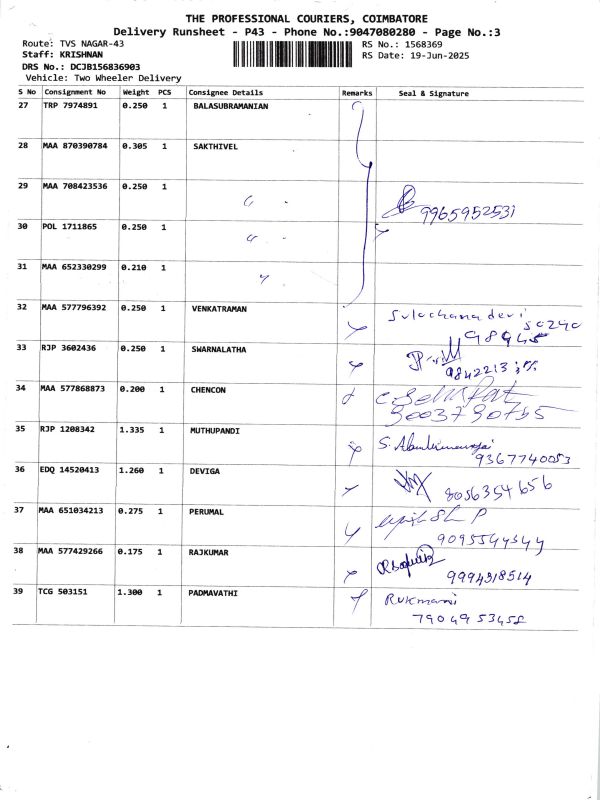 THE PROFESSIONAL COURIERS, COIMBATORE
Delivery Runsheet - P43 - Phone No.:9047080280 - Page No.:3
Route: TVS NAGAR-43
RS No.: 1568369
Staff: KRISHNAN
RS Date: 19-Jun-2025
DRS No.: DCJB156836903
Vehicle: Two Wheeler Delivery
S No Consignment No Weight PCS Consignee Details Remarks Seal & Signature
27 TRP 7974891 0.250 1 BALASUBRAMANIAN
28 MAA 870390784 0.305 1 SAKTHIVEL
29 MAA 708423536 0.250 1
9965952531
30 POL 1711865 0.250 1
31 MAA 652330299 0.210 1
32 MAA 577796392 0.250 1 VENKATRAMAN Sulochana devi
33 RJP 3602436 0.250 1 SWARNALATHA
34 MAA 577868873 0.200 1 CHENCON
35 RJP 1208342 1.335 1 MUTHUPANDI
9367740053
36 EDQ 14520413 1.260 1 DEVIGA
8056354656
37 MAA 651034213 0.275 1 PERUMAL
38 MAA 577429266 0.175 1 RAJKUMAR
9994318514
39 TCG 503151 1.300 1 PADMAVATHI Rukmani
7904953458